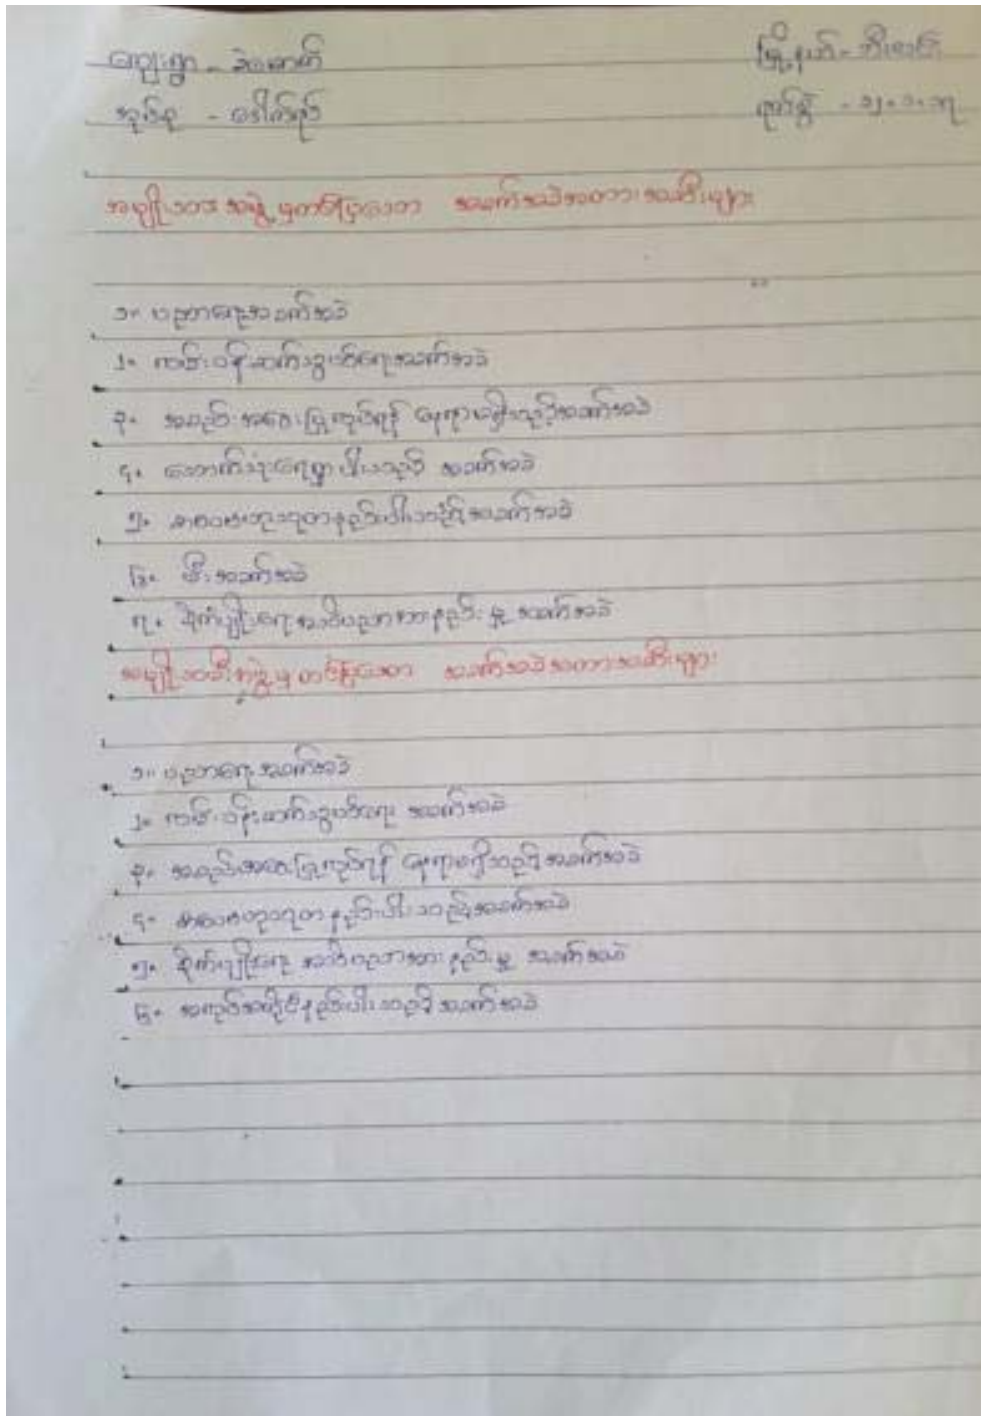 ကျေးရွာ - 
မြို့နယ် - ဘီးလင်း
အုပ်စု - 
ရက်စွဲ - ၁၂.၁.၁၇
အမျိုးသားအဖွဲ့မှတင်ပြသော အခက်အခဲအတားအဆီးများ
၁။ ပညာရေးအခက်အခဲ
၂။ လမ်းပန်းဆက်သွယ်ရေးအခက်အခဲ
၃။ အစည်းအဝေးပြုလုပ်ရန် နေရာမရှိသည့်အခက်အခဲ
၄။ သောက်သုံးရေရှားပါးသည့် အခက်အခဲ
၅။ စာပေဗဟုသုတနည်းပါးသည့်အခက်အခဲ
၆။ မီးအခက်အခဲ
၇။ စိုက်ပျိုးရေးအသိပညာအားနည်းမှု အခက်အခဲ
အမျိုးသမီးအဖွဲ့မှတင်ပြသော အခက်အခဲအတားအဆီးများ
၁။ ပညာရေးအခက်အခဲ
၂။ လမ်းပန်းဆက်သွယ်ရေး အခက်အခဲ
၃။ အစည်းအဝေးပြုလုပ်ရန် နေရာမရှိသည့်အခက်အခဲ
၄။ စာပေဗဟုသုတနည်းပါးသည့်အခက်အခဲ
၅။ စိုက်ပျိုးရေး အသိပညာအားနည်းမှု အခက်အခဲ
၆။ အလုပ်အကိုင်နည်းပါးသည့်အခက်အခဲ